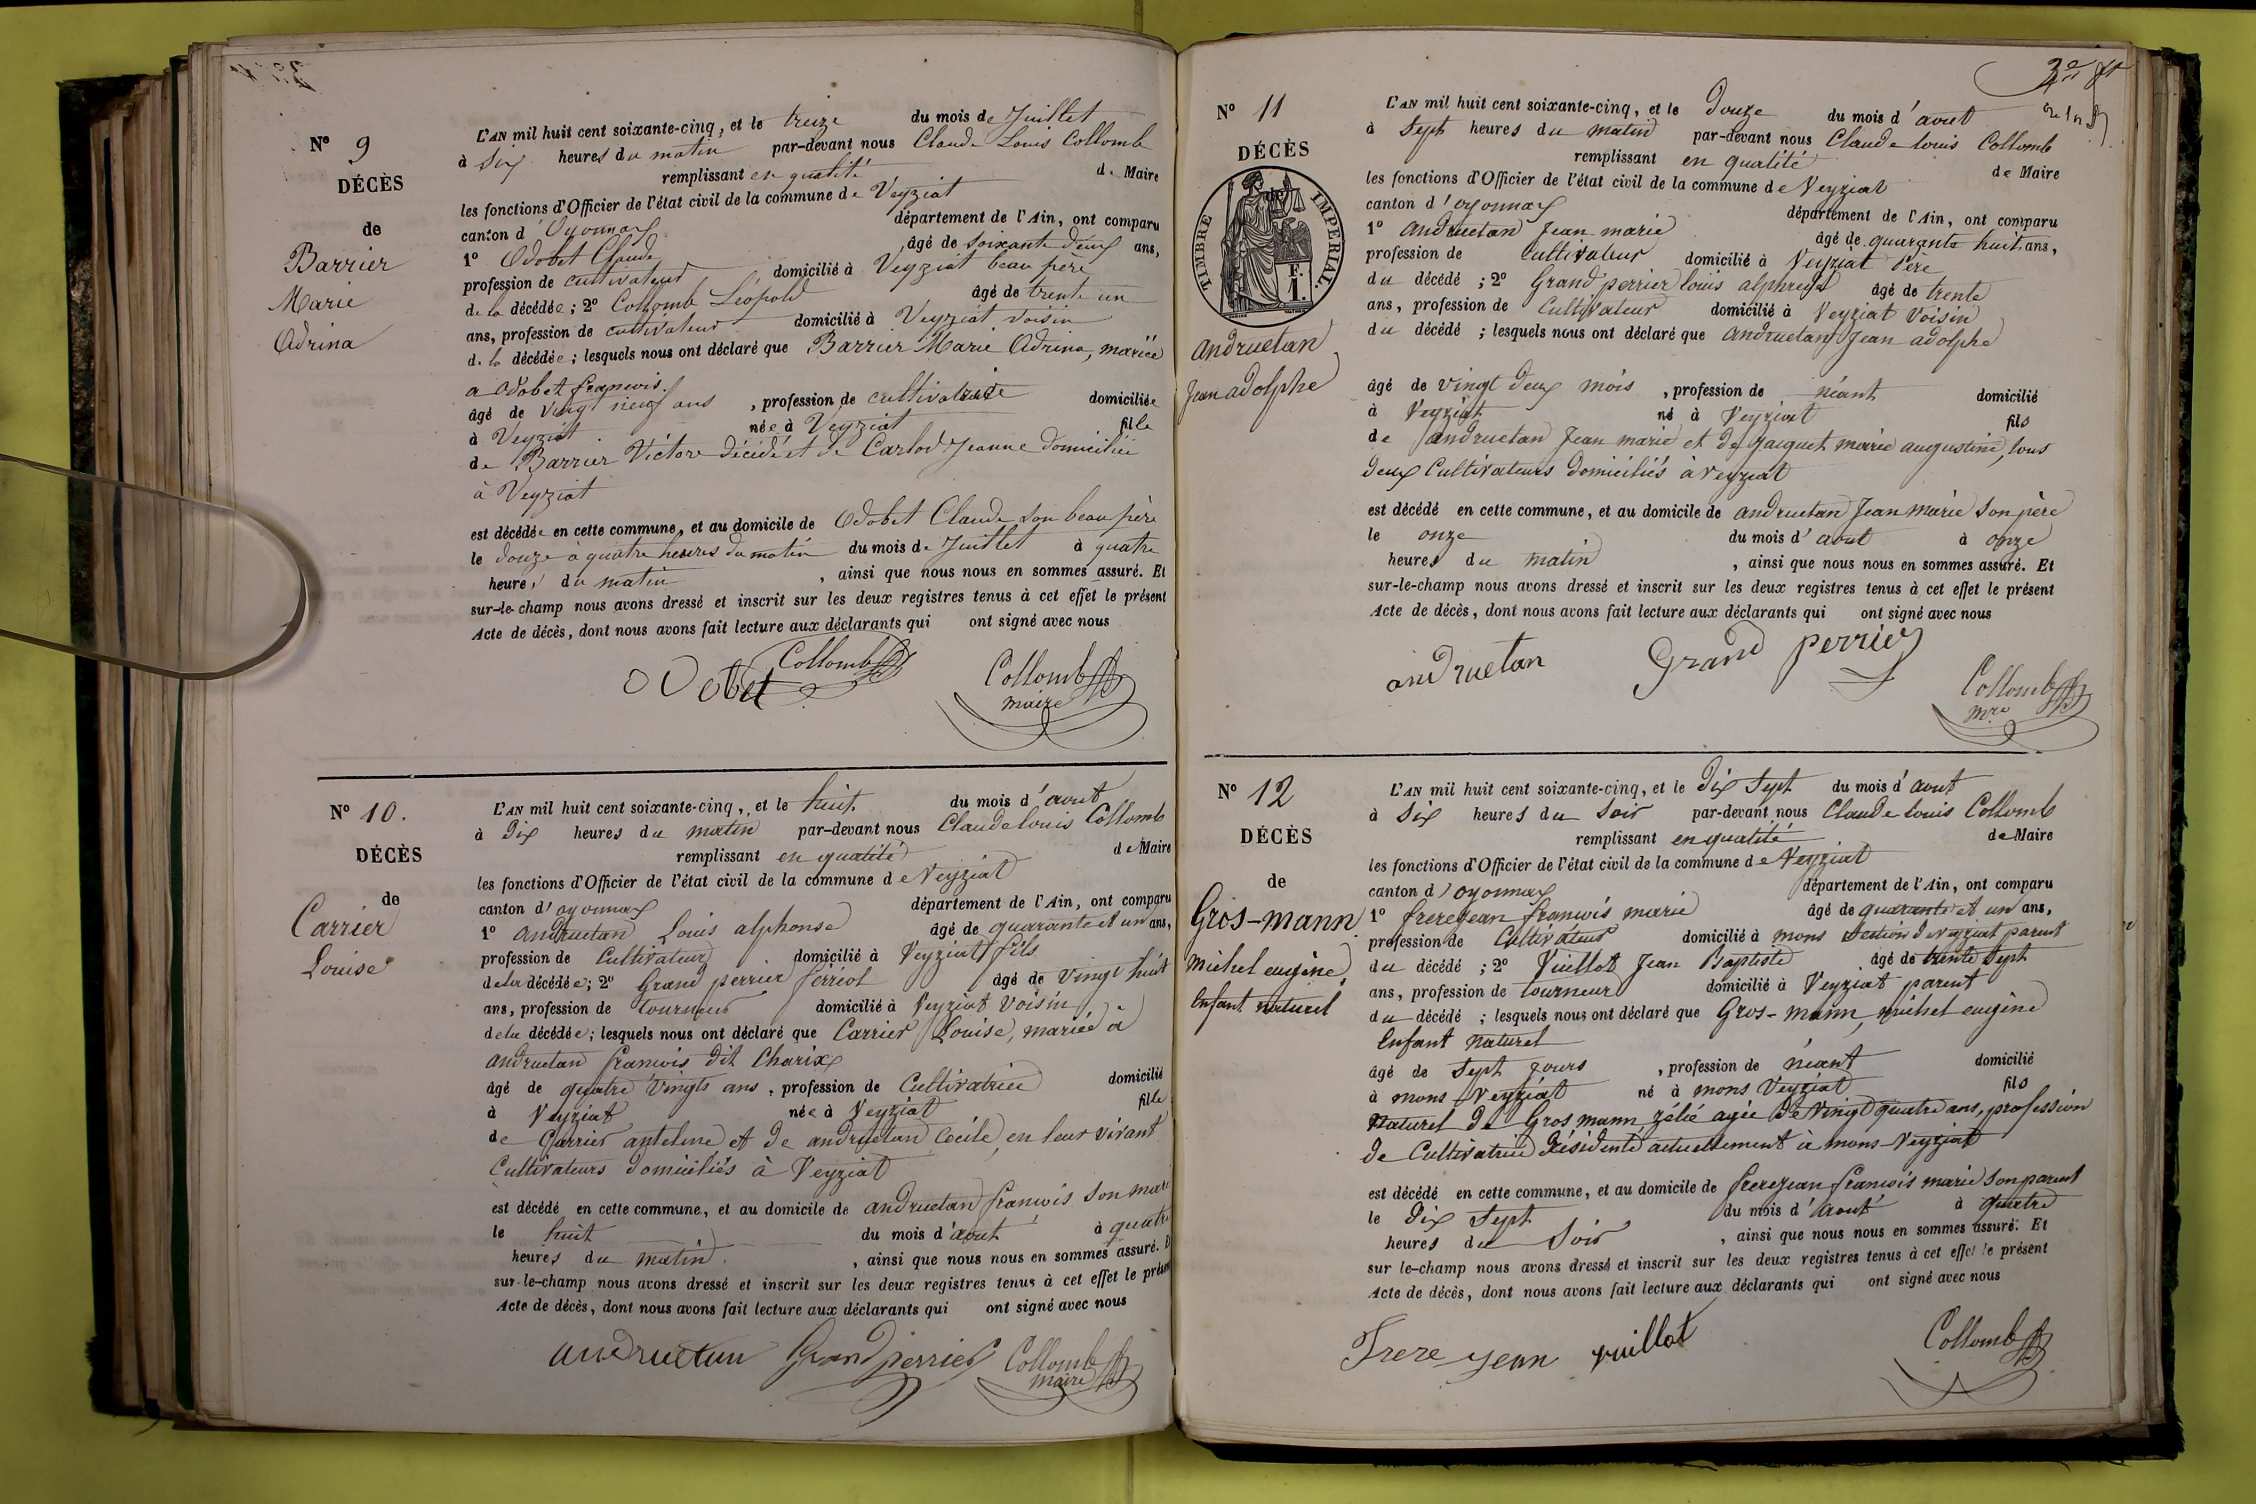 N° 9
DÉCÈS
de
Barrier
Marie
Adrina
L'AN mil huit cent soixante-cinq, et le treize du mois de Juillet
à six heures du matin par-devant nous Claude Louis Collomb
remplissant en qualité de Maire
les fonctions d'Officier de l'état civil de la commune de Veyziat
canton d'Oyonnax département de l'Ain, ont comparu
1° Odobet Claude âgé de soixante deux ans,
profession de cultivateur domicilié à Veyziat beau père
de la décédée ; 2° Collomb Léopold âgé de trente un
ans, profession de cultivateur domicilié à Veyziat voisin
de la décédée ; lesquels nous ont déclaré que Barrier Marie Adrina, mariée
a Odobet francois
âgé de vingt neuf ans , profession de cultivatrice domiciliée
à Veyziat née à Veyziat fille
de Barrier Victore décédé et de Carlod Jeanne domiciliée
à Veyziat
est décédée en cette commune, et au domicile de Odobet Claude son beau père
le douze à quatre heures du matin du mois de Juillet à quatre
heures du matin , ainsi que nous nous en sommes assuré. Et
sur-le-champ nous avons dressé et inscrit sur les deux registres tenus à cet effet le présent
Acte de décès, dont nous avons fait lecture aux déclarants qui ont signé avec nous
Odobet Collomb Collomb
maire
N° 10.
DÉCÈS
de
Carrier
Louise
L'AN mil huit cent soixante-cinq, et le huit du mois d'aout
à dix heures du matin par-devant nous Claude louis Collomb
remplissant en qualité de Maire
les fonctions d'Officier de l'état civil de la commune de Veyziat
canton d'oyonnax département de l'Ain, ont comparu
1° andruetan Louis alphonse âgé de quarante et un ans,
profession de Cultivateur domicilié à Veyziat fils
de la décédée ; 2° Grand perrier fériol âgé de vingt huit
ans, profession de tourneur domicilié à Veyziat voisin
de la décédée ; lesquels nous ont déclaré que Carrier Louise, mariée à
andruetan francois dit Charix
âgé de quatre vingts ans , profession de Cultivatrice domicilié
à Veyziat née à Veyziat fille
de Carrier antelme et de andruetan Cécile, en leur vivant
Cultivateurs domiciliés à Veyziat
est décédé en cette commune, et au domicile de andruetan francois son mari
le huit du mois d'aout à quatre
heures du matin , ainsi que nous nous en sommes assuré. Et
sur-le-champ nous avons dressé et inscrit sur les deux registres tenus à cet effet le présent
Acte de décès, dont nous avons fait lecture aux déclarants qui ont signé avec nous
andruetan Grand perrier Collomb
maire
N° 11
DÉCÈS
TIMBRE IMPÉRIAL.
andruetan
Jean adolphe
L'AN mil huit cent soixante-cinq, et le douze du mois d'aout
à sept heures du matin par-devant nous Claude louis Collomb
remplissant en qualité de Maire
les fonctions d'Officier de l'état civil de la commune de Veyziat
canton d'oyonnax département de l'Ain, ont comparu
1° andruetan Jean marie âgé de quarante huit ans,
profession de Cultivateur domicilié à Veyziat Père
du décédé ; 2° Grand perrier louis âgé de trente
ans, profession de Cultivateur domicilié à Veyziat Voisin
du décédé ; lesquels nous ont déclaré que andruetan Jean adolphe
âgé de vingt deux mois , profession de néant domicilié
à Veyziat né à Veyziat fils
de andruetan Jean marie et de Jacquet marie augustine, tous
deux Cultivateurs domiciliés à veyziat
est décédé en cette commune, et au domicile de andruetan Jean marie son père
le onze du mois d'aout à onze
heures du matin , ainsi que nous nous en sommes assuré. Et
sur-le-champ nous avons dressé et inscrit sur les deux registres tenus à cet effet le présent
Acte de décès, dont nous avons fait lecture aux déclarants qui ont signé avec nous
andruetan Grand perrier Collomb
mre
N° 12
DÉCÈS
de
Gros-mann
michel eugène
Enfant naturel
L'AN mil huit cent soixante-cinq, et le dix sept du mois d'aout
à six heures du soir par-devant nous Claude louis Collomb
remplissant en qualité de Maire
les fonctions d'Officier de l'état civil de la commune de Veyziat
canton d'oyonnax département de l'Ain, ont comparu
1° frerejean francois marie âgé de quarante et un ans,
profession de Cultivateur domicilié à mons section de Veyziat parent
du décédé ; 2° Vuillot Jean Baptiste âgé de trente sept
ans, profession de tourneur domicilié à Veyziat parent
du décédé ; lesquels nous ont déclaré que Gros-mann michel eugène
Enfant naturel
âgé de sept jours , profession de néant domicilié
à mons Veyziat né à mons Veyziat fils
naturel de Gros mann zélié agée de vingt quatre ans, profession
de Cultivatrice Résidente actuellement à mons-Veyziat
est décédé en cette commune, et au domicile de frerejean francois marie son parent
le dix sept du mois d'aout à quatre
heures du soir , ainsi que nous nous en sommes assuré. Et
sur le-champ nous avons dressé et inscrit sur les deux registres tenus à cet effet le présent
Acte de décès, dont nous avons fait lecture aux déclarants qui ont signé avec nous
Frere jean vuillot Collomb